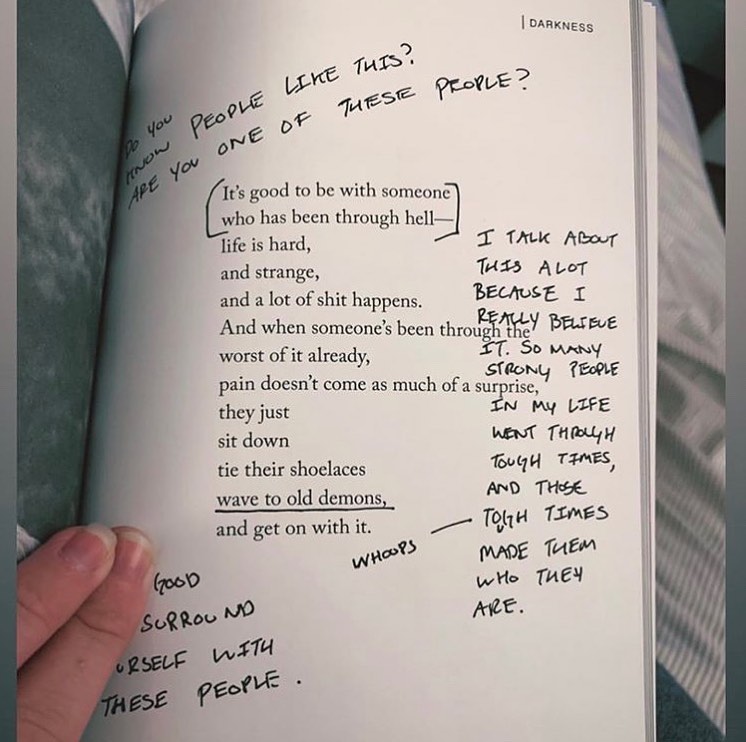 | DARKNESS
DO YOU
KNOW PEOPLE LIKE THIS?
ARE YOU ONE OF THESE PEOPLE?
It's good to be with someone
who has been through hell—
life is hard,
and strange,
and a lot of shit happens.
And when someone's been through the
worst of it already,
pain doesn't come as much of a surprise,
they just
sit down
tie their shoelaces
wave to old demons,
and get on with it.
I TALK ABOUT
THIS A LOT
BECAUSE I
REALLY BELIEVE
IT. SO MANY
STRONG PEOPLE
IN MY LIFE
WENT THROUGH
TOUGH TIMES,
AND THOSE
TOUGH TIMES
MADE THEM
WHO THEY
ARE.
WHOOPS
GOOD
SURROUND
URSELF WITH
THESE PEOPLE.